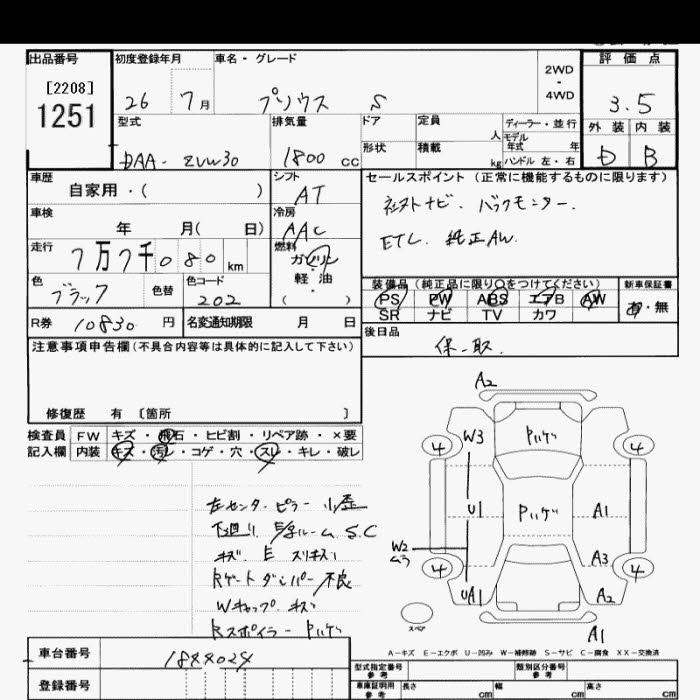 出品番号
[2208]
1251
初度登録年月
26 7月
車名・グレード
プリウス S
2WD
-
4WD
評価点
3.5
外装 内装
D B
型式
DAA-ZVW30
排気量
1800 cc
ドア
形状
定員
人
積載
kg
ディーラー・並行
モデル
年式 年
ハンドル 左・右
車歴
自家用・( )
シフト
AT
セールスポイント (正常に機能するものに限ります)
社外ナビ. バックモニター.
ETC. 純正AW.
車検
年 月( 日)
冷房
AAC
走行
7万7千080 km
燃料
ガソリン
軽・油
( )
色
ブラック
色替
色コード
202
装備品 (純正品に限り○をつけてください)
PS PW ABS エアB AW
SR ナビ TV カワ
新車保証書
有・無
R券 10830 円
名変通知期限 月 日
後日品
保.取.
注意事項申告欄 (不具合内容等は具体的に記入して下さい)
修復歴 有 〔箇所 〕
検査員
記入欄
FW キズ・飛石・ヒビ割・リペア跡・×要
内装 キズ・汚レ・コゲ・穴・スレ・キレ・破レ
左センターピラー 小歪
下廻り E/gルーム S.C
キズ E スリキズ
Rゲートダンパー不良
Wキャップ キズ
Rスポイラー Pハゲ
A2
W3
Pハゲ
4
4
U1
Pハゲ
A1
W2
ムラ
A3
4
4
UA1
A2
A1
スペア
A-キズ E-エクボ U-凹み W-補修跡 S-サビ C-腐食 XX-交換済
車台番号
登録番号
型式指定番号
参考
類別区分番号
参考
車庫証明用
参考
長さ cm
幅 cm
高さ cm